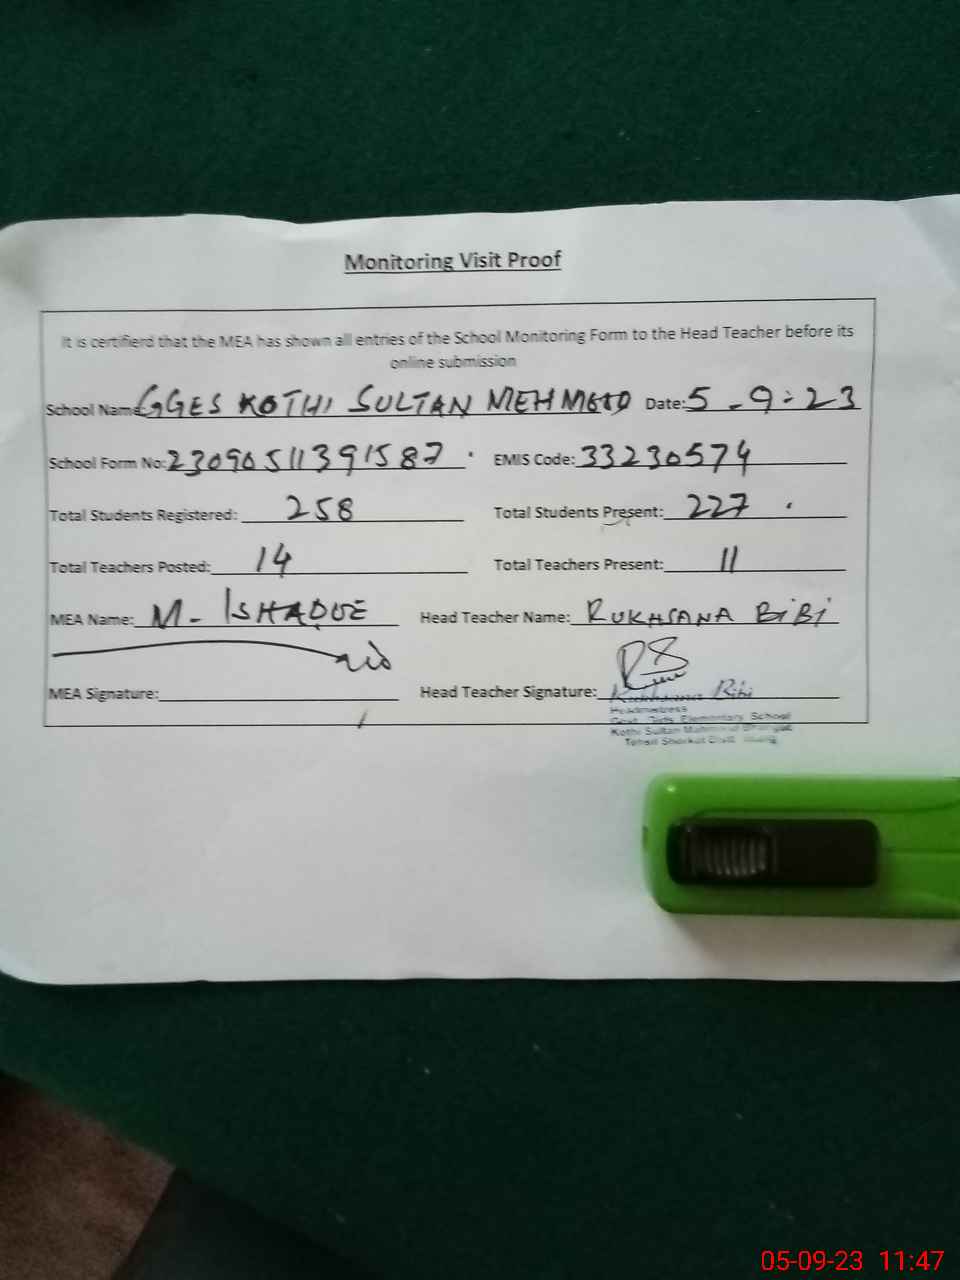 Monitoring Visit Proof
It is certifierd that the MEA has shown all entries of the School Monitoring Form to the Head Teacher before its
online submission
School Name GGES KOTHI SULTAN MEHMOOD Date: 5-9-23
School Form No: 23090511391587 EMIS Code: 33230574
Total Students Registered: 258 Total Students Present: 227
Total Teachers Posted: 14 Total Teachers Present: 11
MEA Name: M- ISHAQUE Head Teacher Name: RUKHSANA BiBi
MEA Signature: Head Teacher Signature:
Rukhsana Bibi
Headmistress
Govt. Girls Elementary School
Kothi Sultan
Tehsil Shorkot Distt. Jhang
05-09-23 11:47